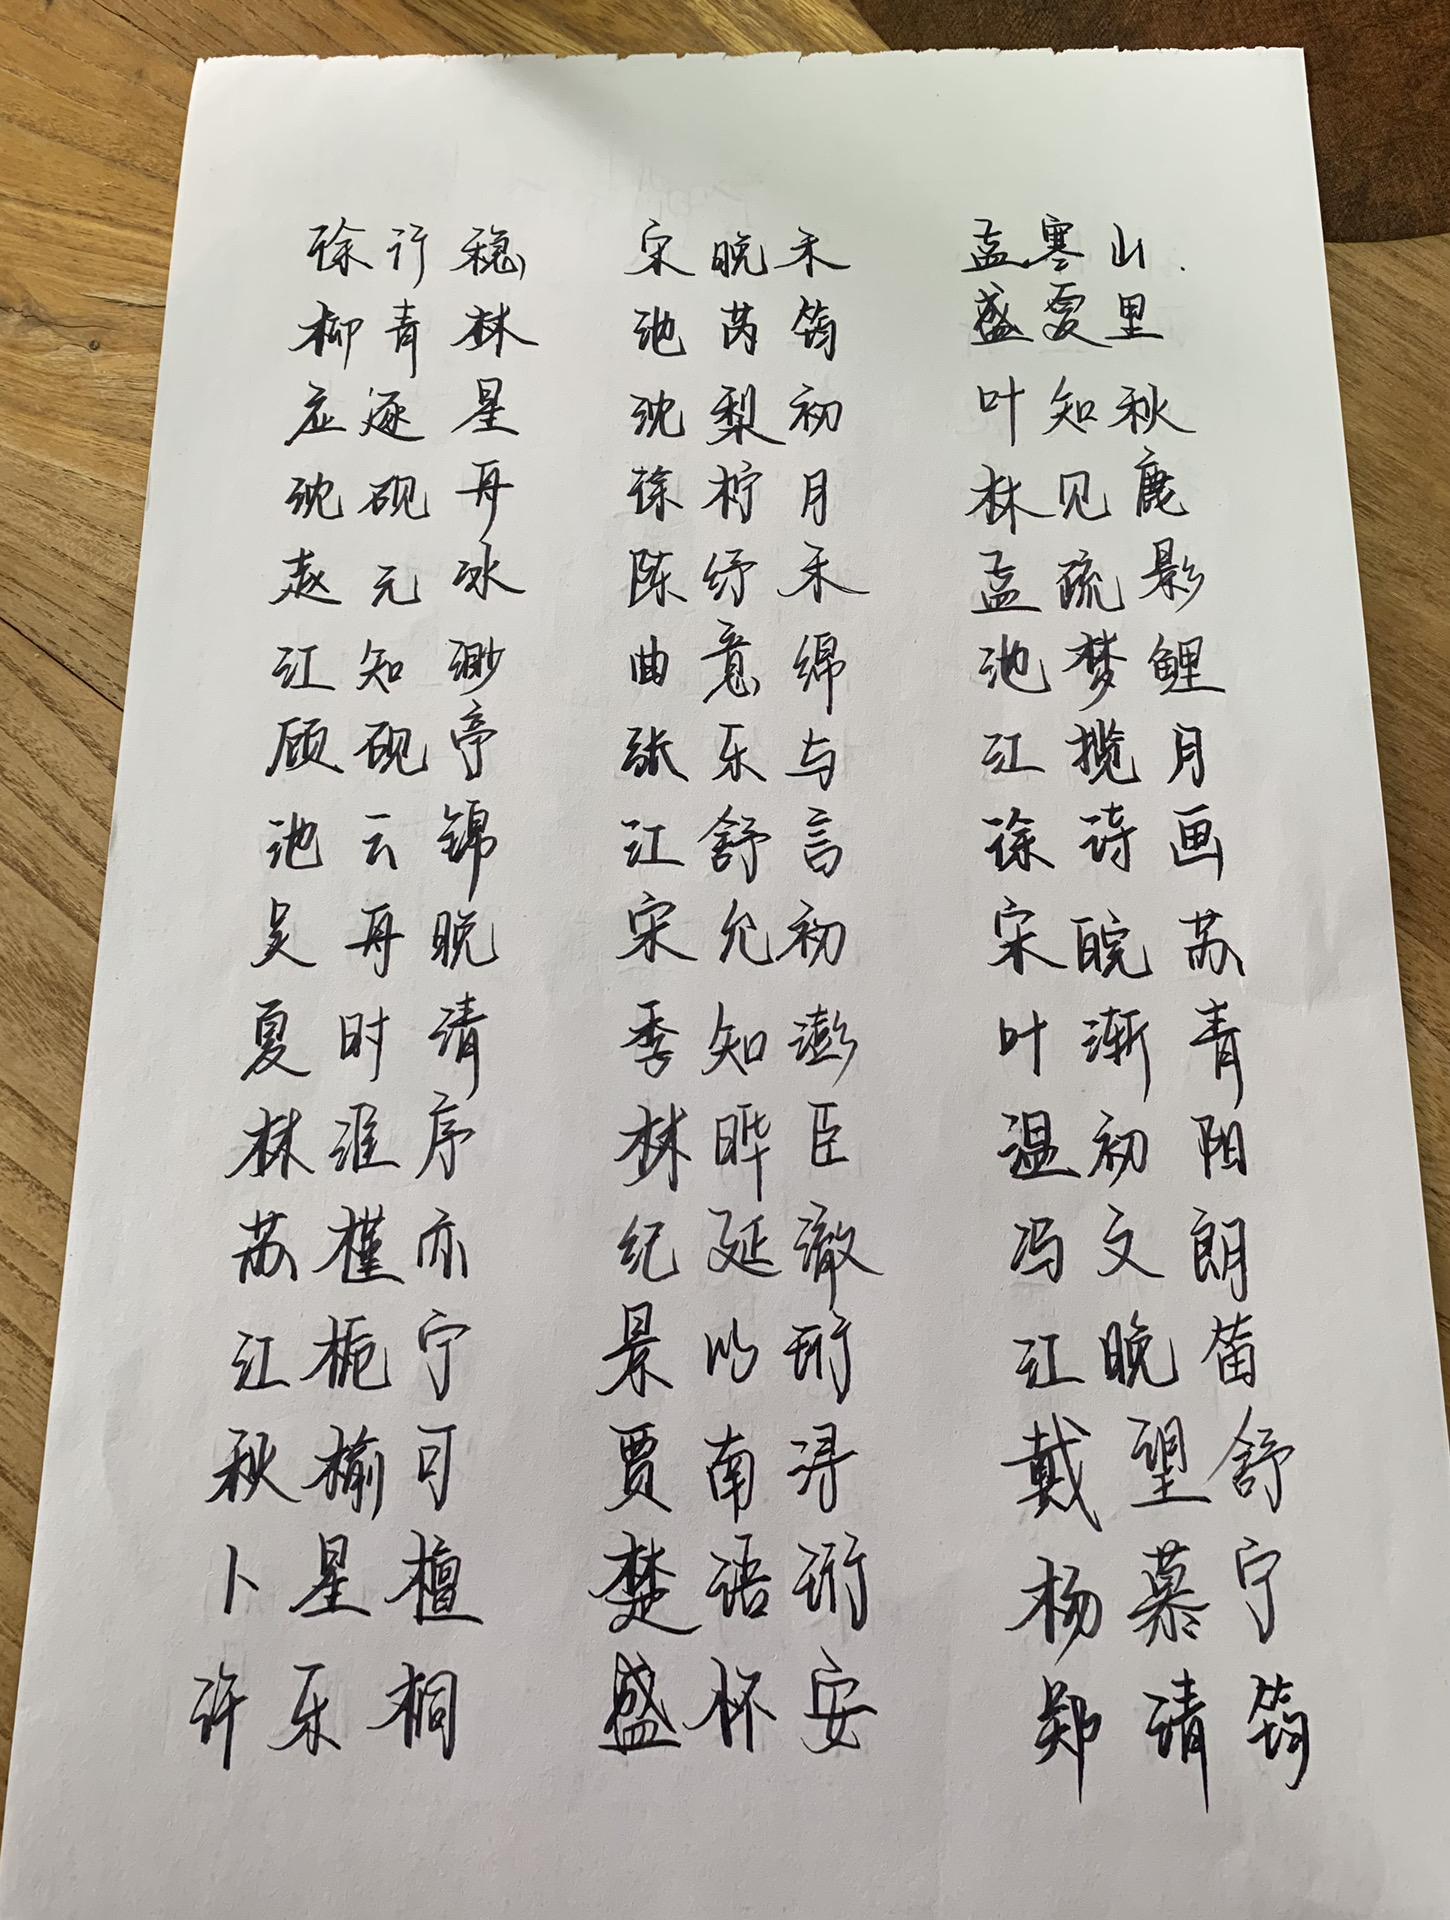 徐行稳 宋晚禾 孟寒山.
柳青林 池芮筠 盛夏里
应逐星 沈梨初 叶知秋
沈砚舟 徐柠月 林见鹿
赵元冰 陈纾禾 孟疏影
江知渺 曲意绵 池梦鲤
顾砚亭 张乐与 江揽月
池云锦 江舒言 徐诗画
吴舟晚 宋允初 宋皖苏
夏时清 季知澎 叶渐青
林淮序 林晔臣 温初阳
苏槿亦 纪延澈 冯文朗
江栀宁 景以珩 江晚笛
秋榆可 贾南浔 戴望舒
卜星檀 楚语珩 杨慕宁
许乐桐 盛怀安 郑清筠